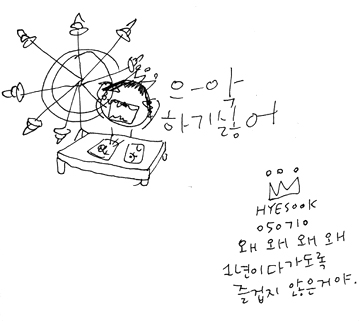 으~악
하기싫어
HYESOOK
050710
왜 왜 왜 왜
1년이다가도록
즐겁지 않은거야.